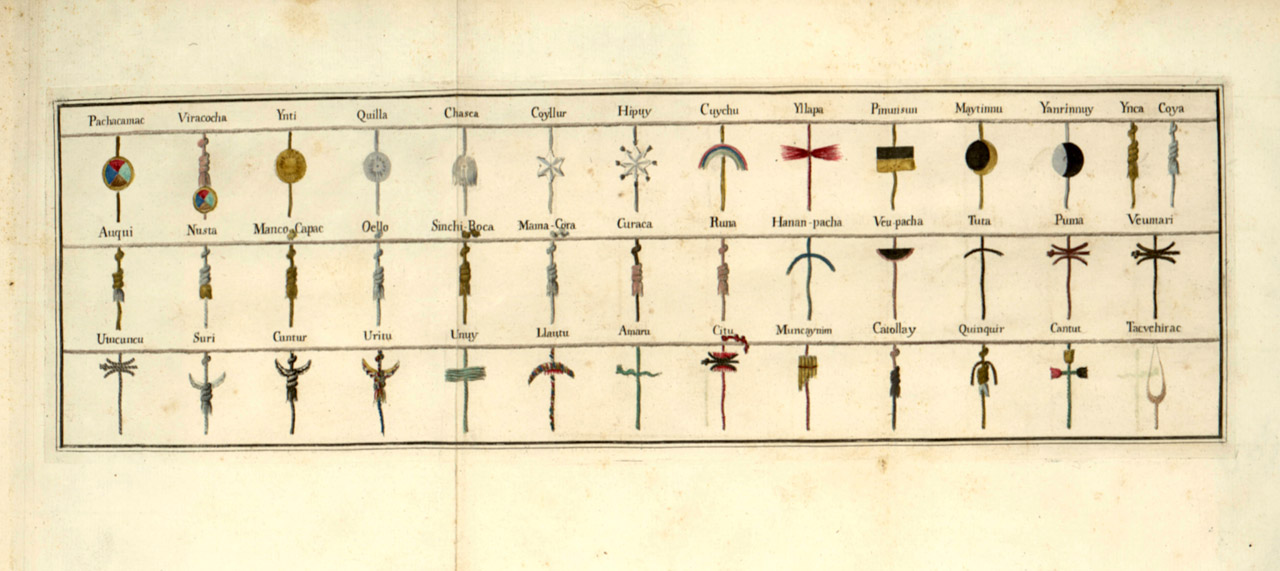 Pachacamac Viracocha Ynti Quilla Chasca Coyllur Hipuy Cuychu Yllapa Pinunsun Maytinnu Yanrinnuy Ynca Coya
Auqui Nusta Manco-Capac Oello Sinchi-Roca Mama-Cora Curaca Runa Hanan-pacha Veu-pacha Tuta Puma Veumari
Utucuncu Suri Cuntur Uritu Unuy Llautu Amaru Citu Muncaynim Catollay Quinquir Cantut Tacvehirac